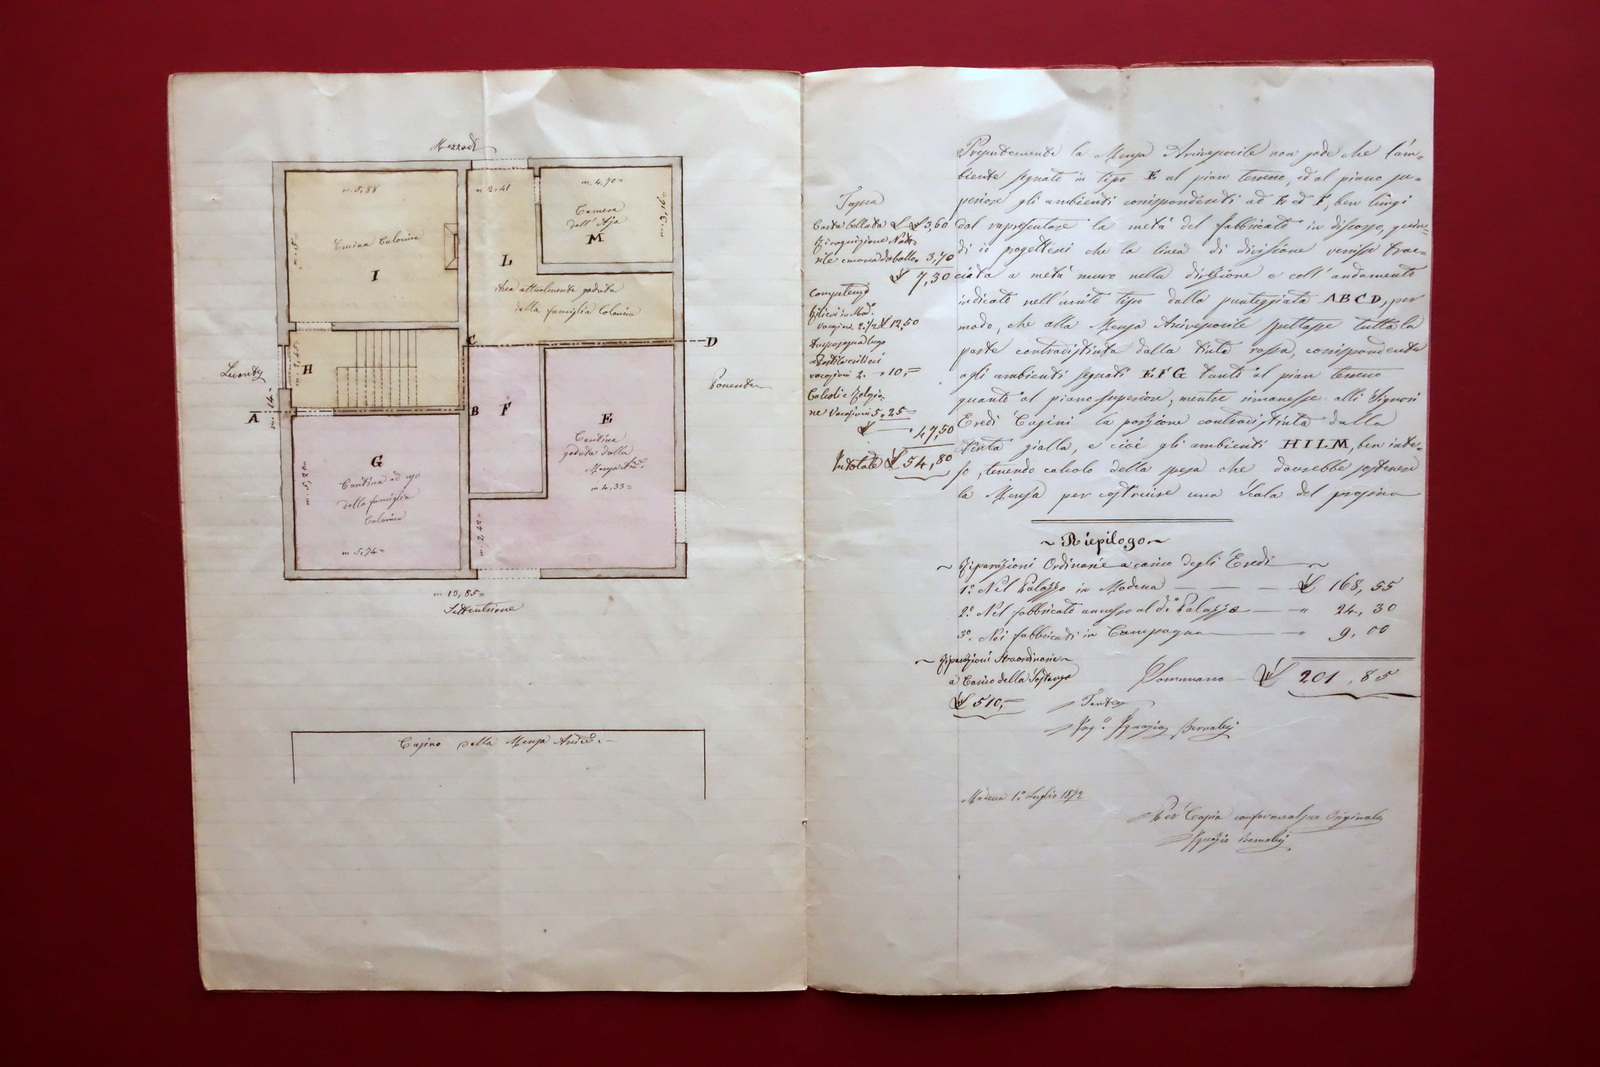 Mezzodì
m. 5,88
Cucina Colonica
I
m. 5,
m. 2,41
m. 4,70
Camera
dell'Aja
M
m. 3,16
L
Area attualmente goduta
della famiglia Colonica
H
C
D
Levante
Ponente
A
B
m. 14
F
E
Cantina
goduta dalla
Mensa
m. 4,33
G
Cantina ad uso
della famiglia
Colonica
m. 5,20
m. 5,74
m. 2,42
m. 13,85
Settentrione
Casino della Mensa
Carta bollata £ 3,60
3,70
£ 7,30
Competenze
vacazioni 2 1/2 £ 12,50
vacazioni 2. 10,=
Calcoli e
ne Vacazioni 5. 25=
£ 47,50
In totale £ 54,80
la Mensa Arcivescovile non gode che l'am=
biente segnato in tipo E al pian terreno, ed al piano su=
periore gli ambienti corrispondenti ad E ed F, ben lungi
dal rappresentare la metà del fabbricato in discorso, quin=
di si progetterei che la linea di divisione venisse trac=
ciata a metà muro nella direzione e coll'andamento
indicato nell'unito tipo dalla punteggiata ABCD, per
modo, che alla Mensa Arcivescovile spettasse tutta la
parte contradistinta dalla tinta rossa, corrispondente
agli ambienti segnati EFG tanto al pian terreno
quanto al piano superiore, mentre rimanesse alli Signori
Eredi la porzione contradistinta dalla
tinta gialla, e cioè gli ambienti HILM, ben inte=
so, tenendo calcolo della spesa che dovrebbe sostenere
la Mensa per costruire una Scala del
Riepilogo
Riparazioni Ordinarie a carico degli Eredi
1° Nel Palazzo in Modena £ 168,55
2° Nel fabbricato annesso al do Palazzo " 24,30
3° Nei fabbricati in Campagna " 9,00
Sommano £ 201,85
Riparazioni Straordinarie
a Carico della
£ 510,=
Ignazio Bernabei
Modena 1° Luglio 1872
Per Copia conforme all'Originale
Ignazio Bernabei